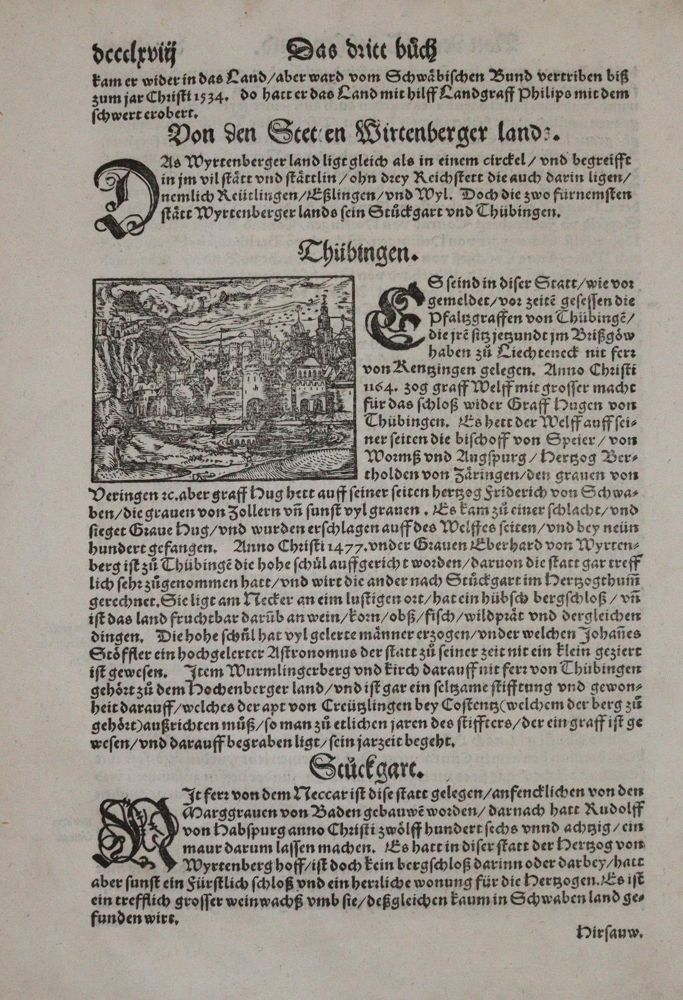 dcccclxviij Das dritt bůch
kam er wider in das Land/aber ward vom Schwäbischen Bund vertriben biß
zum jar Christi 1534. do hatt er das Land mit hilff Landgraff Philips mit dem
schwert erobert.
Von den Stetten Wirtenberger lands.
DAs Wyrtenberger land ligt gleich als in einem circkel/vnd begreifft
in jm vil stätt vnd stättlin/ohn drey Reichstett die auch darin ligen/
nemlich Reütlingen/Eßlingen/vnd Wyl. Doch die zwo fürnemsten
stätt Wyrtenberger lands sein Stůckgart vnd Thübingen.
Thübingen.
ES seind in diser Statt/wie vor
gemeldet/vor zeitē gesessen die
Pfaltzgraffen von Thübingē/
die jrē sitz jetzundt jm Brißgöw
haben zů Liechteneck nit ferr
von Kentzingen gelegen. Anno Christi
1164. zog graff Welff mit grosser macht
für das schloß wider Graff Hugen von
Thübingen. Es hett der Welff auff sei-
ner seiten die bischoff von Speier/von
Wormß vnd Augspurg/Hertzog Ber-
tholden von Zäringen/den grauen von
Veringen ꝛc. aber graff Hug hett auff seiner seiten hertzog Friderich von Schwa-
ben/die grauen von Zollern vñ sunst vyl grauen. Es kam zů einer schlacht/vnd
sieget Graue Hug/vnd wurden erschlagen auff des Welffes seiten/vnd bey neün
hundert gefangen. Anno Christi 1477. vnder Grauen Eberhard von Wyrten-
berg ist zů Thübingē die hohe schůl auffgericht worden/daruon die statt gar treff
lich sehr zůgenommen hatt/vnd wirt die ander nach Stůckgart im Hertzogthum̃
gerechnet. Sie ligt am Necker an eim lustigen ort/hat ein hübsch bergschloß/vñ
ist das land fruchtbar darüb an wein/korn/obß/fisch/wildprät vnd dergleichen
dingen. Die hohe schůl hat vyl gelerte männer erzogen/vnder welchen Johañes
Stöffler ein hochgelerter Astronomus der statt zů seiner zeit nit ein klein geziert
ist gewesen. Item Wurmlingerberg vnd kirch darauff nit ferr von Thübingen
gehört zů dem Hochenberger land/vnd ist gar ein seltzame stifftung vnd gewon-
heit darauff/welches der apt von Creützlingen bey Costentz(welchem der berg zů
gehört)außrichten můß/so man zů etlichen jaren des stiffters/der ein graff ist ge
wesen/vnd darauff begraben ligt/sein jarzeit begeht.
Stůckgart.
NIt ferr von dem Neccar ist dise statt gelegen/anfencklichen von den
Marggrauen von Baden gebauwē worden/darnach hatt Rudolff
von Habspurg anno Christi zwölff hundert sechs vnnd achtzig/ein
maur darum lassen machen. Es hatt in diser statt der Hertzog von
Wyrtenberg hoff/ist doch kein bergschloß darinn oder darbey/hatt
aber sunst ein Fürstlich schloß vnd ein herzliche wonung für die Hertzogen. Es ist
ein trefflich grosser weinwachß vmb sie/deßgleichen kaum in Schwaben land ge-
funden wirt.
Hirsauw.